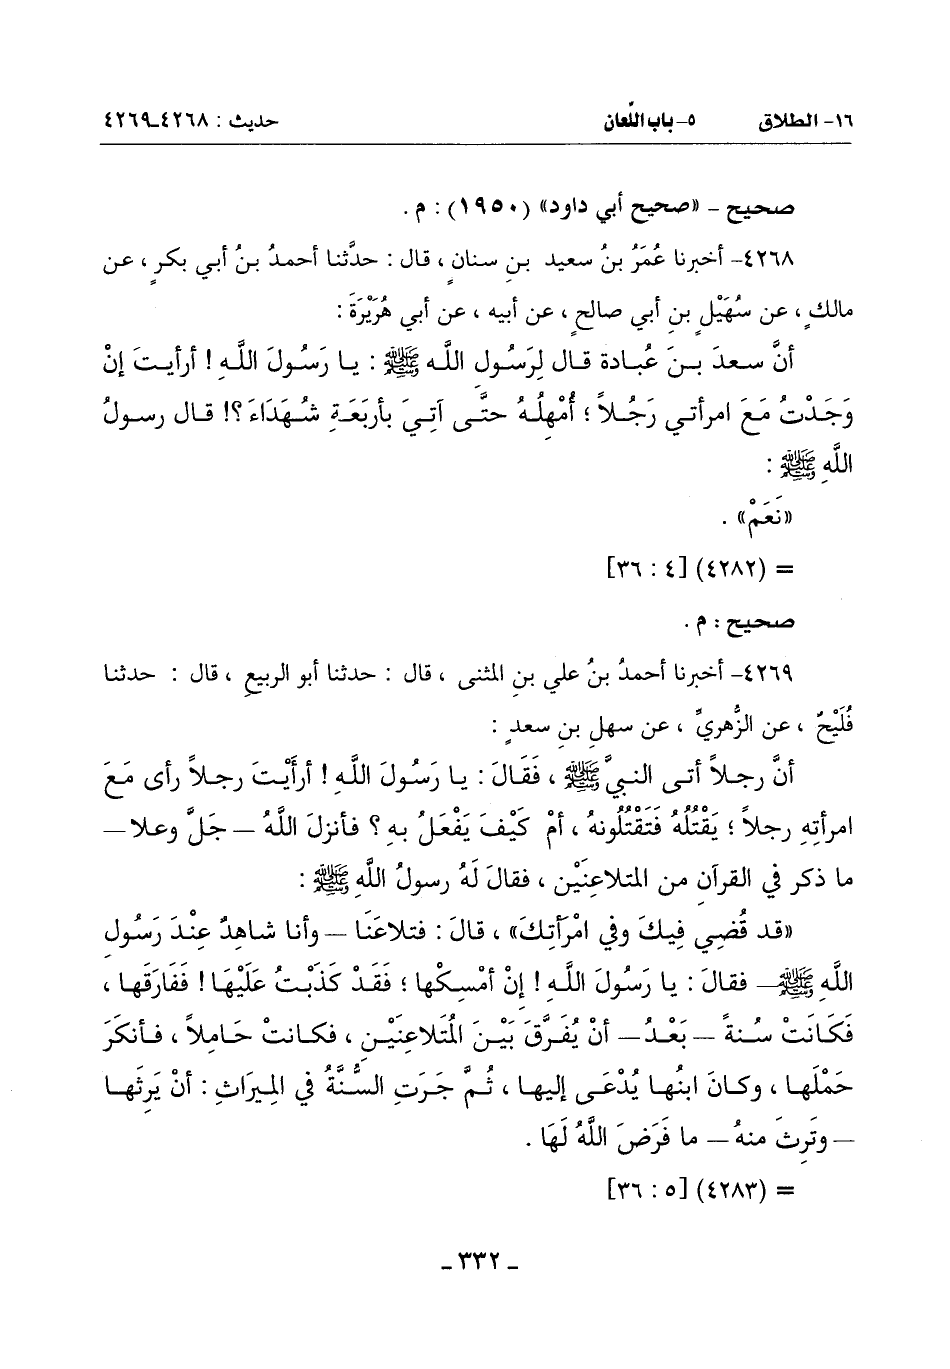 ١٦- الطلاق ٥- باب اللِّعان حديث : ٤٢٦٨ـ٤٢٦٩
صحيح - «صحيح أبي داود» (١٩٥٠) : م .
٤٢٦٨- أخبرنا عُمَرُ بنُ سعيد بنِ سنانٍ ، قال : حدَّثنا أحمدُ بنُ أبي بكرٍ ، عن
مالكٍ ، عن سُهَيْلِ بنِ أبي صالحٍ ، عن أبيه ، عن أبي هُرَيْرَةَ :
أنَّ سعدَ بنَ عُبادة قال لِرَسُولِ اللَّه ﷺ : يا رَسُولَ اللَّهِ ! أرأيتَ إنْ
وَجَدْتُ مَعَ امرأتي رَجُلاً ؛ أُمْهِلُهُ حتَّى آتِيَ بأربَعَةِ شُهَدَاءَ ؟! قال رسولُ
اللَّه ﷺ :
«نَعَمْ» .
= (٤٢٨٢) [٤ : ٣٦]
صحيح : م .
٤٢٦٩- أخبرنا أحمدُ بنُ علي بنِ المثنى ، قال : حدثنا أبو الربيعِ ، قال : حدثنا
فُلَيْحٌ ، عن الزُّهريِّ ، عن سهلِ بنِ سعدٍ :
أنَّ رجلاً أتى النبيَّ ﷺ ، فَقَالَ : يا رَسُولَ اللَّهِ ! أرأَيْتَ رجلاً رأى مَعَ
امرأتِهِ رجلاً ؛ يَقْتُلُهُ فَتَقْتُلُونهُ ، أمْ كَيْفَ يَفْعَلُ بهِ ؟ فأنزلَ اللَّهُ — جَلَّ وعلا —
ما ذكر في القرآنِ من المتلاعِنَيْنِ ، فقالَ لَهُ رسولُ اللَّهِ ﷺ :
«قد قُضِيَ فِيكَ وفي امْرَأتِكَ» ، قالَ : فتلاعَنَا — وأنا شاهِدٌ عِنْدَ رَسُولِ
اللَّهِ ﷺ — فقالَ : يا رَسُولَ اللَّهِ ! إنْ أمْسِكْها ؛ فَقَدْ كَذَبْتُ عَلَيْهَا ! فَفَارَقَها ،
فَكَانَتْ سُنةً — بَعْدُ — أنْ يُفَرَّقَ بَيْنَ المُتَلاعِنَيْنِ ، فكانتْ حَامِلاً ، فأنكَرَ
حَمْلَها ، وكانَ ابنُها يُدْعَى إليها ، ثُمَّ جَرَتِ السُّنَّةُ في المِيراثِ : أنْ يَرِثَها
— وتَرِثَ منهُ — ما فَرَضَ اللَّهُ لَهَا .
= (٤٢٨٣) [٥ : ٣٦]
- ٣٣٢ -